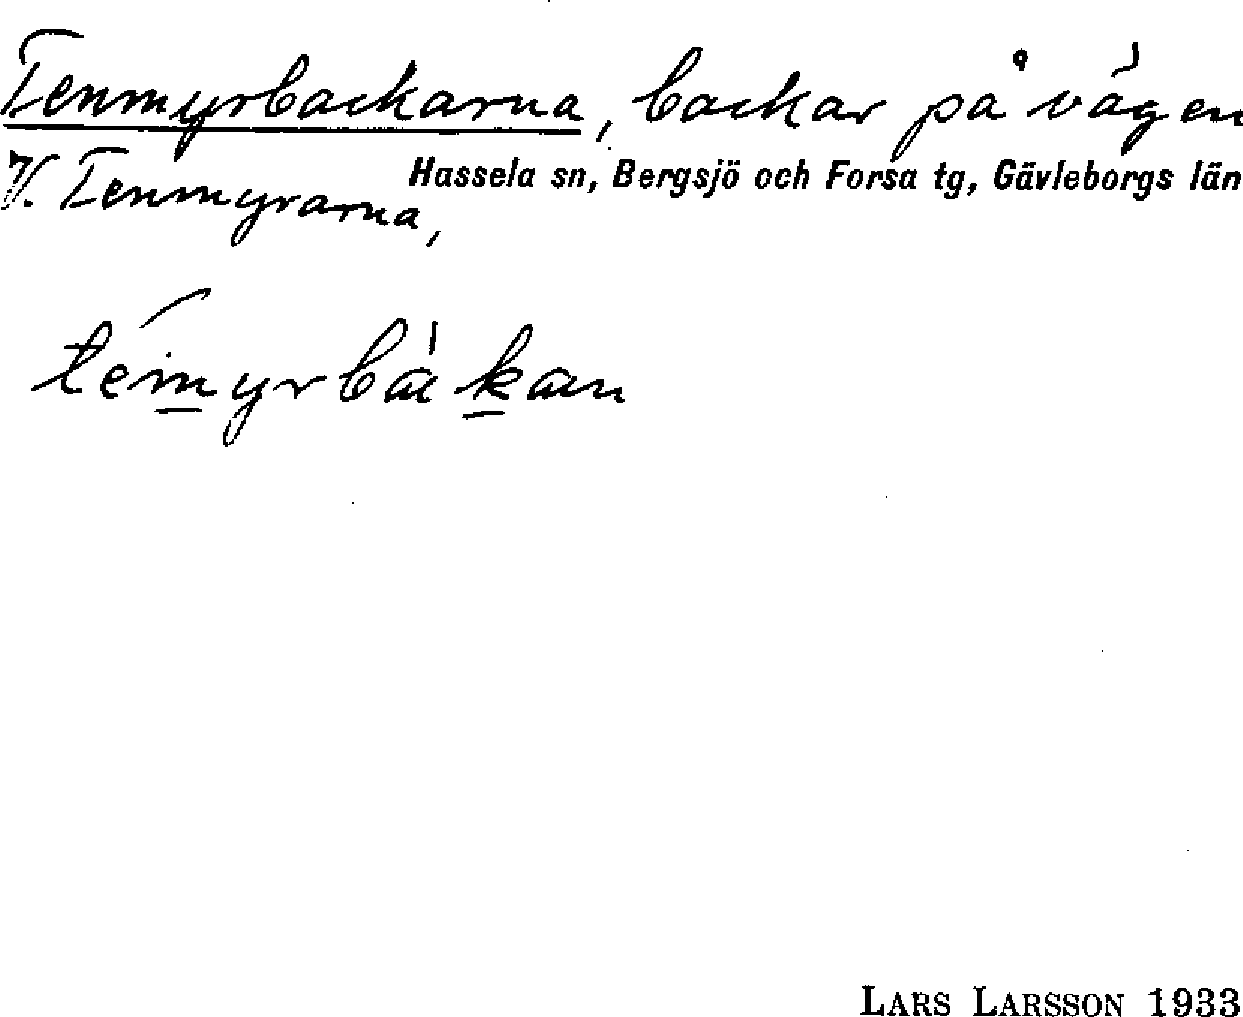 Tenmyrbackarna, backar på vägen
V. Tenmyrarna,
Hassela sn, Bergsjö och Forsa tg, Gävleborgs län
temyrbakan
LARS LARSSON 1933